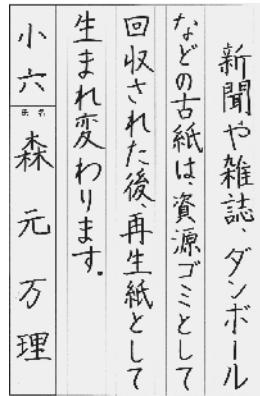 新聞や雑誌、ダンボール
などの古紙は、資源ゴミとして
回収された後、再生紙として
生まれ変わります。
小六
氏名
森元万理